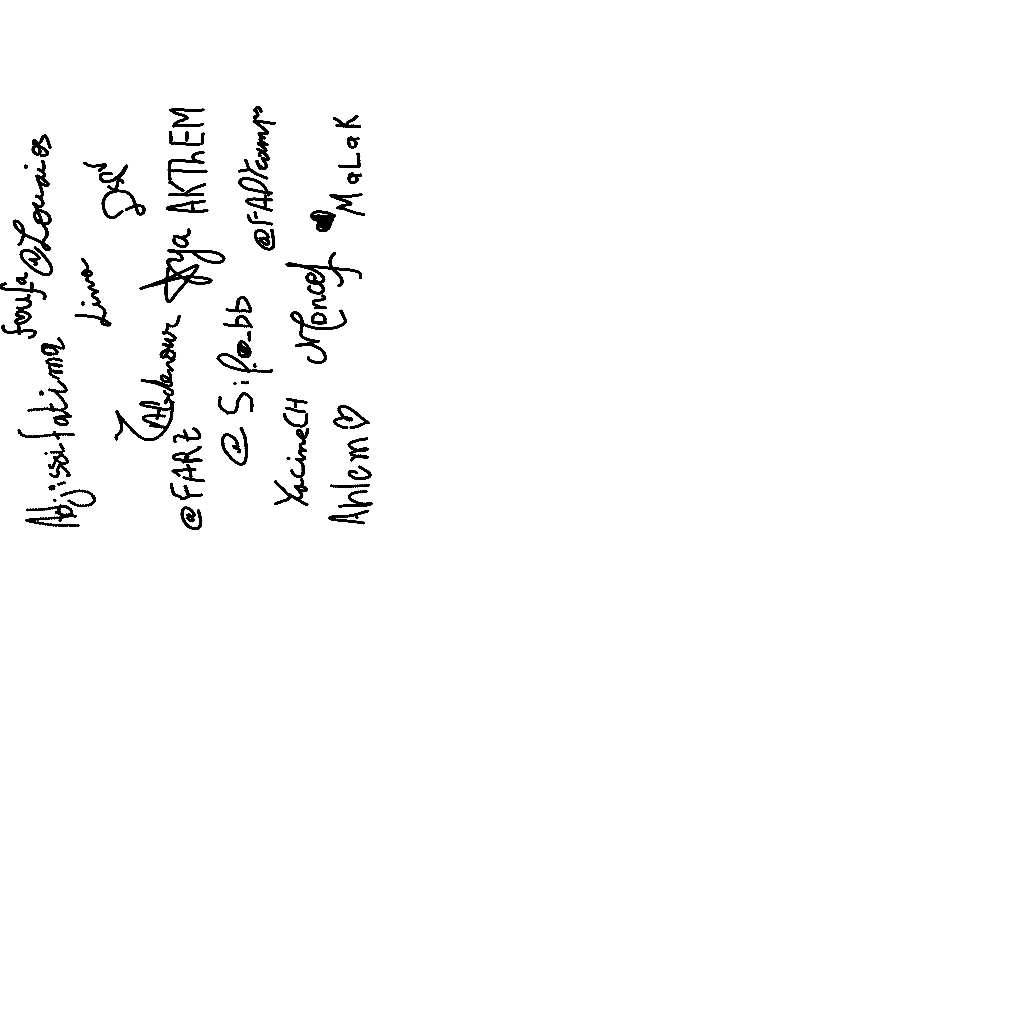 Abjissifatima foufa @Lounios
Lina
Abdenour Aya AKThEM
@FARZ
@Sif@_bb @FADYcamps
YacineCH Moncef MaLaK
Ahlem♡